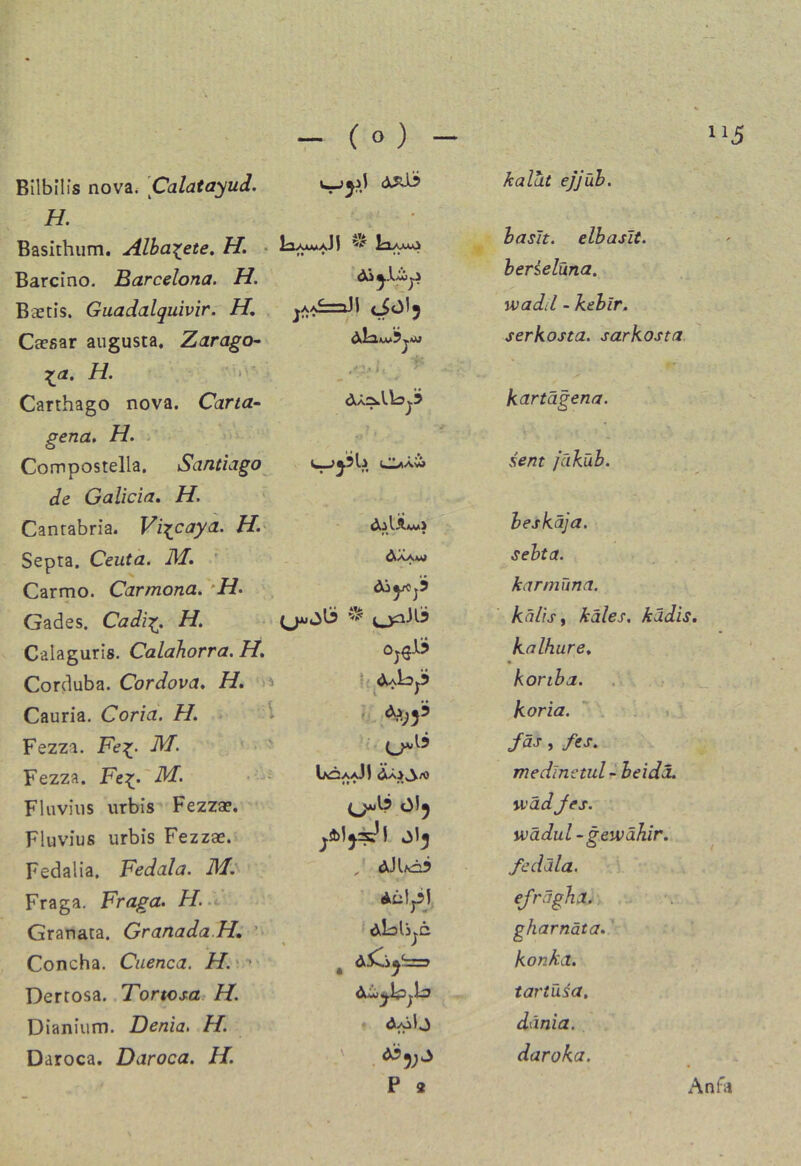 — ( o ) — 115
Bilbilis nova. Calatayud. قلعة ايوب kalat ejjūb.
H.
Basithum. Albaζete. H. بسيط * البسيط basīt. elbasīt.
Barcino. Barcelona. H. برشلونة berśelūna.
Bætis. Guadalquivir. H. وادى الكبير wadil-kebīr.
Cæsar augusta. Zarago- سرقسطة serkosta. sarkosta
ζa. H.
Carthago nova. Carta- قرطاجنة kartāgena.
gena. H.
Compostella. Santiago شنت ياقوب śent jākūb.
de Galicia. H.
Cantabria. Viζcaya. H. بسقاية beskāja.
Septa. Ceuta. M. سبتة sebta.
Carmo. Carmona. H. قرمونة karmūna.
Gades. Cadiζ. H. قالص * قادس kālis, kāles. kādis.
Calaguris. Calahorra. H. قلهرة kalhure.
Corduba. Cordova. H. قرطبة kortba.
Cauria. Coria. H. قورية koria.
Fezza. Feζ. M. فاس fās, fes.
Fezza. Feζ. M. مدينة البيضا medīnetul-beidā.
Fluvius urbis Fezzæ. واد فاس wād fes.
Fluvius urbis Fezzæ. واد الجواهر wādul-gewāhir.
Fedalia. Fedala. M. فضالة fedāla.
Fraga. Fraga. H. افراغة efrāgha.
Granata. Granada H. غرناطة gharnāta.
Concha. Cuenca. H. كونكة konka.
Dertosa. Tortosa H. طرطوشة tartūśa.
Dianium. Denia. H. دانية dānia.
Daroca. Daroca. H. دروقة daroka.
P 2 Anfa